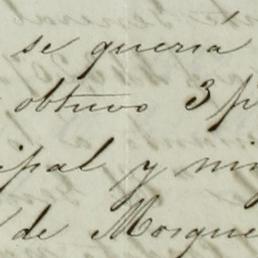 se queria
obtuvo 3 p
cipal y mi
de Mosque